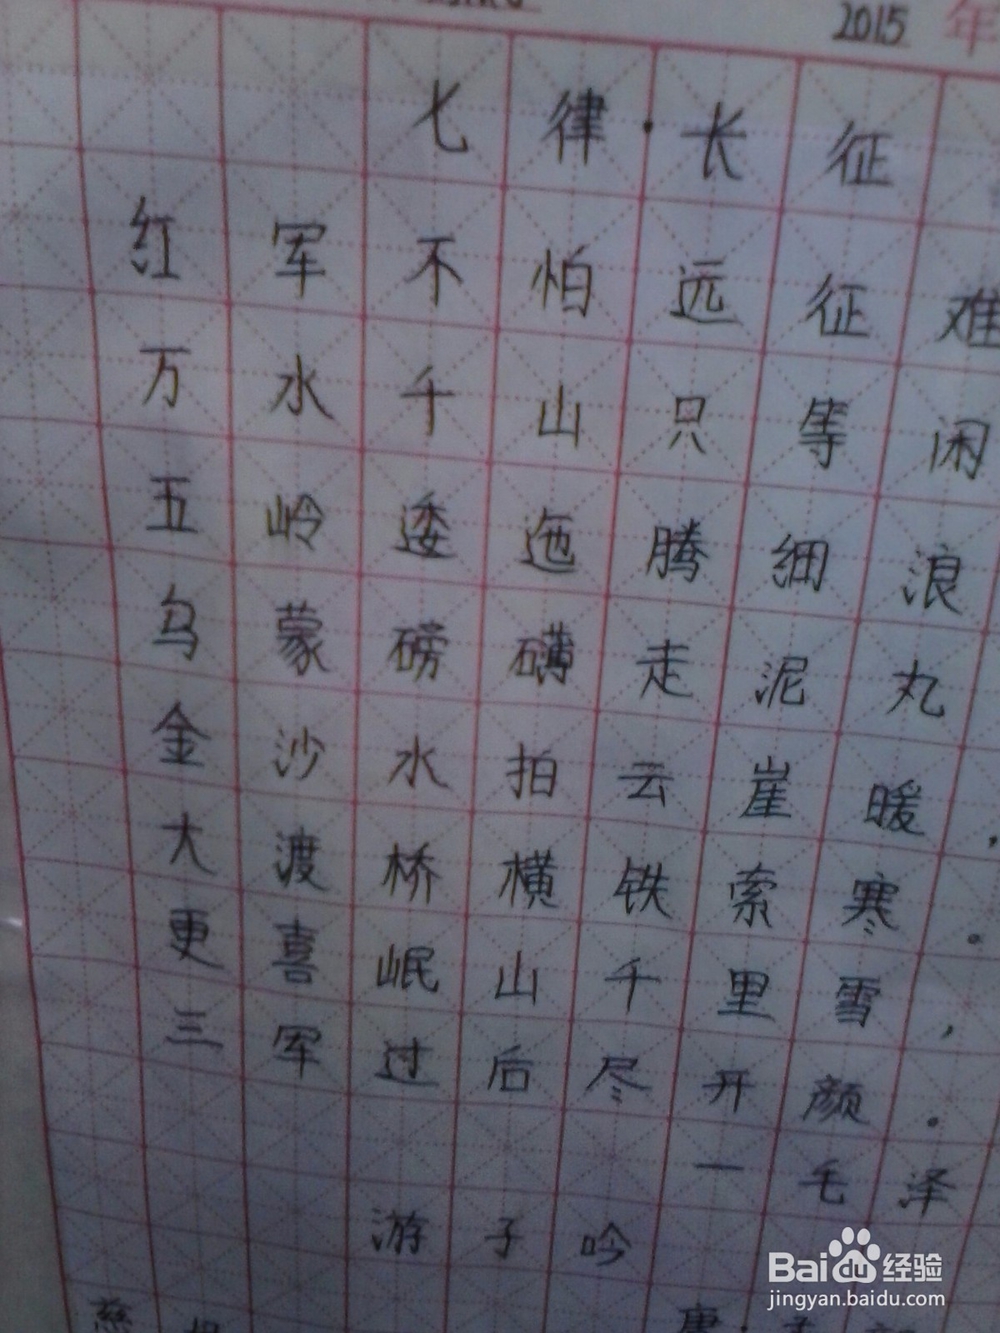 2015 年
七律·长征
红军不怕远征难
万水千山只等闲
五岭逶迤腾细浪
乌蒙磅礴走泥丸
金沙水拍云崖暖,
大渡桥横铁索寒。
更喜岷山千里雪,
三军过后尽开颜。
一毛泽
游子吟
慈 唐·孟
Bai du 经验
jingyan.baidu.com